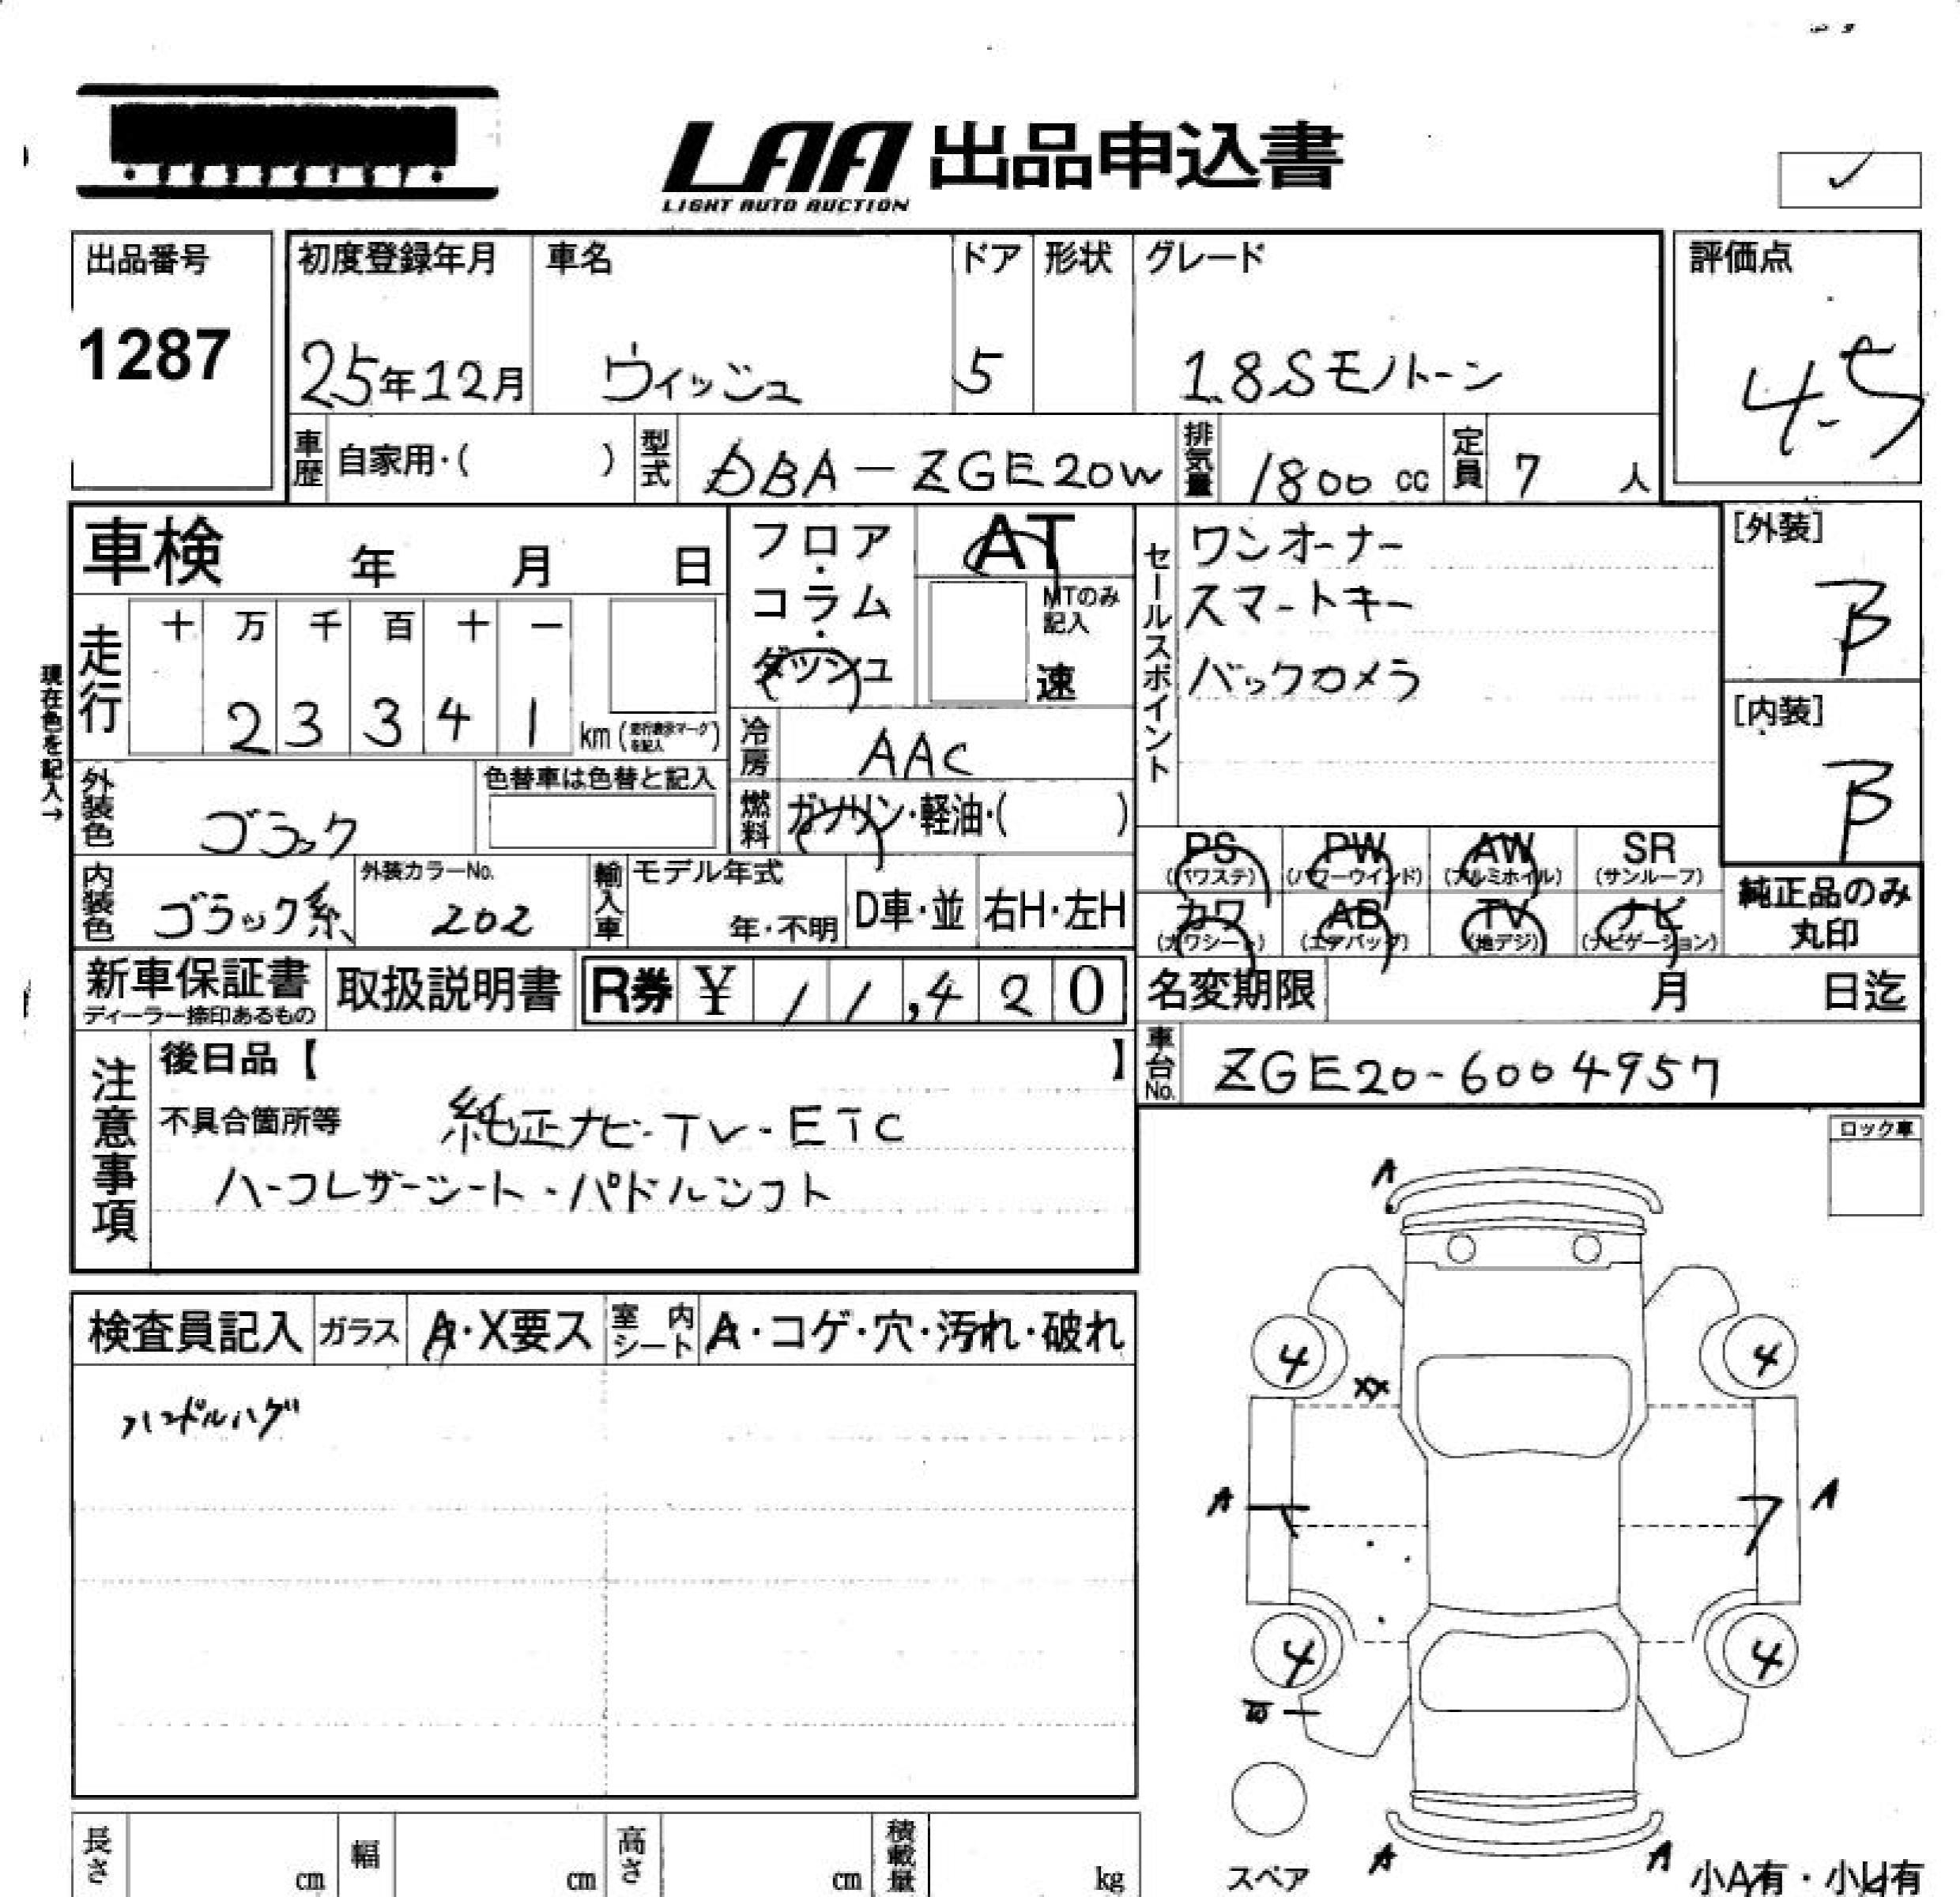 LAA 出品申込書
LIGHT AUTO AUCTION
✓
出品番号
1287
初度登録年月
25年12月
車名
ウィッシュ
ドア
5
形状
グレード
1.8Sモノトーン
評価点
4.5
車歴
自家用・( )
型式
DBA-ZGE20W
排気量
1800 cc
定員
7 人
車検 年 月 日
フロア・コラム・ダッシュ
AT
MTのみ記入
速
セールスポイント
ワンオーナー
スマートキー
バックカメラ
[外装]
B
[内装]
B
現在色を記入→
走行
十 万 千 百 十 一
2 3 3 4 1 km (走行表示マークを記入)
冷房
AAC
外装色
ブラック
色替車は色替と記入
燃料
ガソリン・軽油・( )
PS (パワステ)
PW (パワーウインド)
AW (アルミホイル)
SR (サンルーフ)
カワ (カワシート)
AB (エアバッグ)
TV (地デジ)
ナビ (ナビゲーション)
純正品のみ
丸印
内装色
ブラック系
外装カラーNo.
202
輸入車
モデル年式
年・不明
D車・並
右H・左H
新車保証書
ディーラー捺印あるもの
取扱説明書
R券 ¥ 11,420
名変期限 月 日迄
車台No.
ZGE20-6004957
注意事項
後日品【 】
不具合箇所等 純正ナビ-TV-ETC
ハーフレザーシート・パドルシフト
ロック車
検査員記入
ガラス
A・X要ス
室内シート
A・コゲ・穴・汚れ・破れ
ハンドルハゲ
A
4
4
XX
A
A
4
4
スペア
A
A
小A有・小U有
長さ cm
幅 cm
高さ cm
積載量 kg